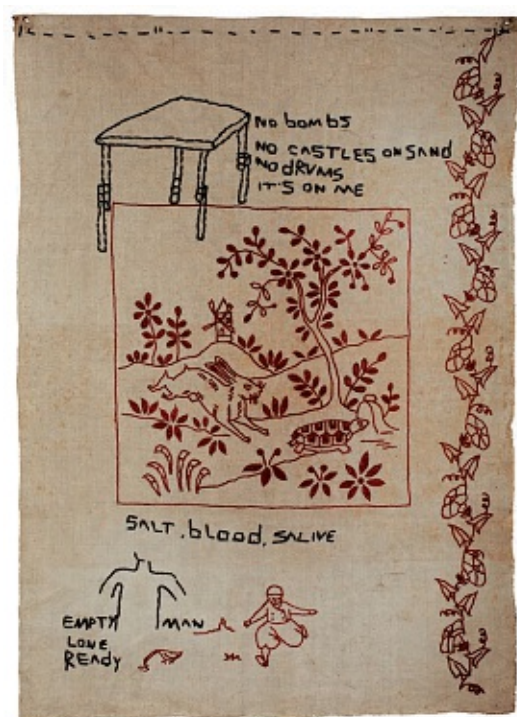 No bombS
NO CASTLES ON SAND
NO dRUMS
IT'S ON ME
SALT, blood, SALIVE
EMPTY MAN
LOVE
READY